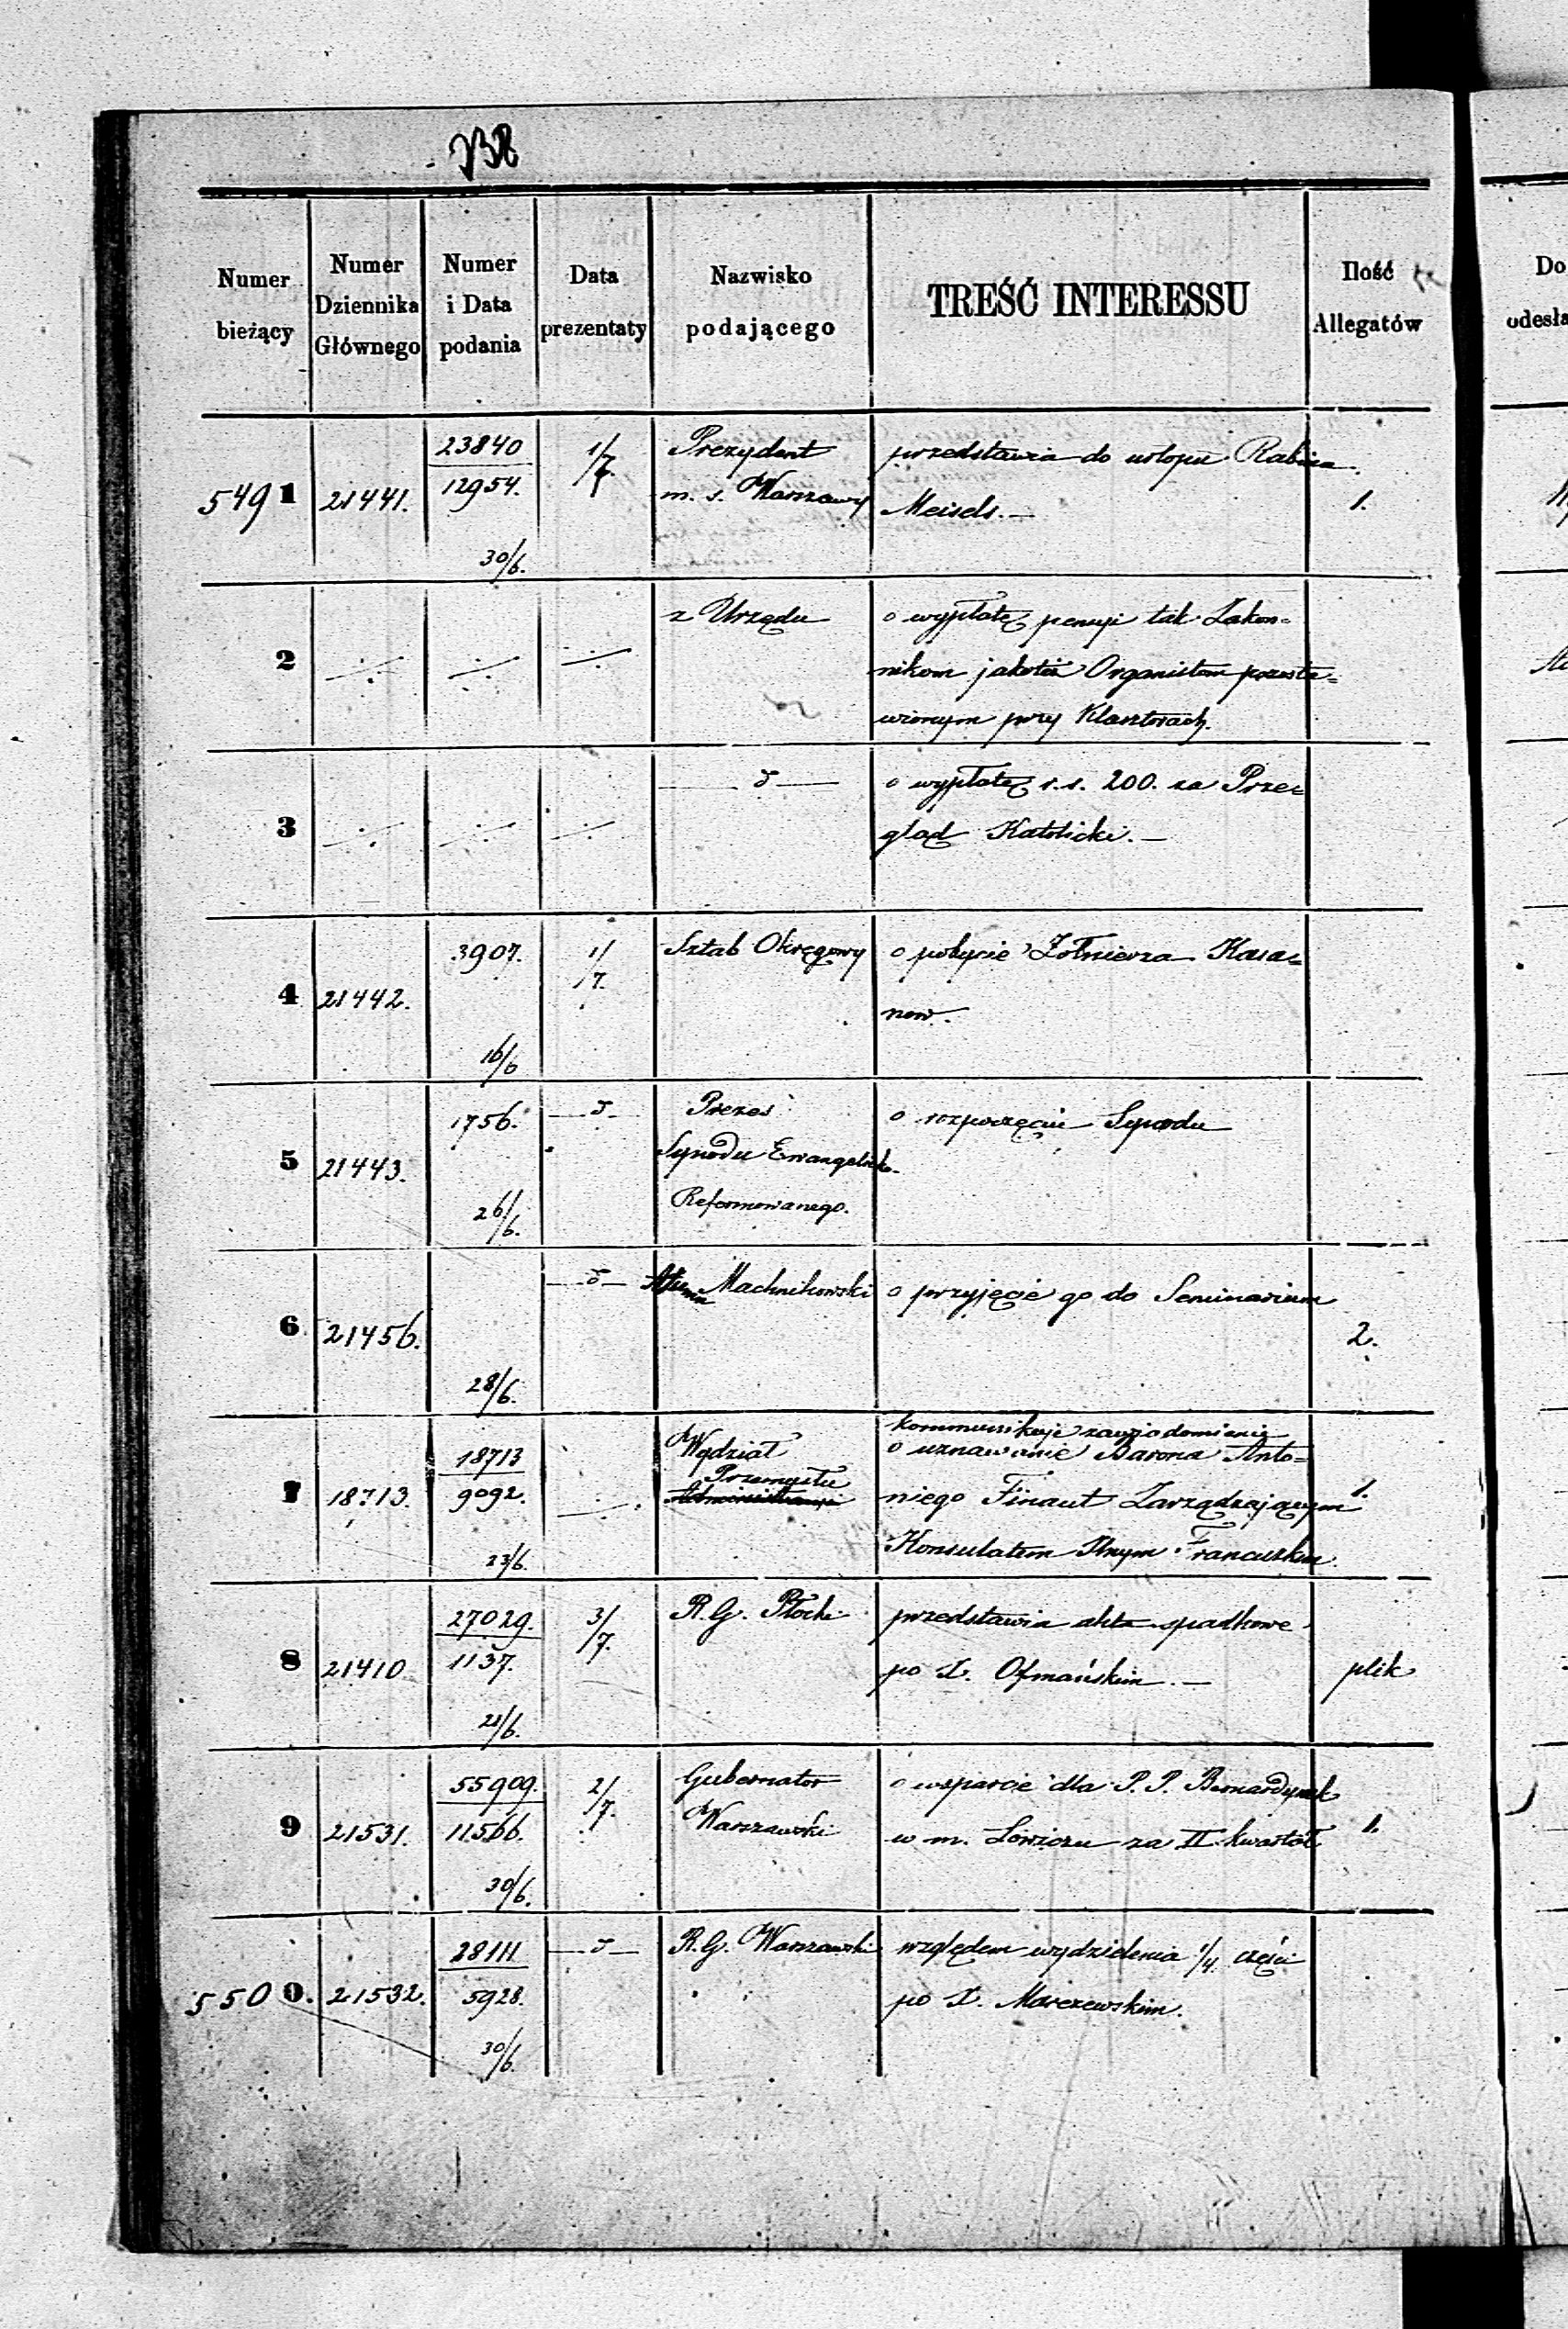 Numer bieżący
Numer Dziennika Głównego
Numer i Data podania
Data prezentaty
Nazwisko podającego
TREŚĆ INTERESSU
Ilość Allegatów
Do
odesła
5491 21441. 23840 1/7. Prezydent przedstawia do urlopu Rabina
12954. m. s. Warszawy Meisels. — 1.
30/6.
2 z Urzędu o wypłatę pensyi tak Zakon=
nikom jakoteż Organistom pozosta=
wionym przy Klasztorach.
3 o wypłatę r.s. 200. za Prze=
gląd Katolicki. —
4 21442. 3907. 1/7. Sztab Okręgowy o pobycie Żołnierza Kasa=
now.
16/6
5 21443. 1756. Prezes o rozpoczęciu Synodu
Synodu Ewangelick.
Reformowanego.
26/6.
6 21456. Machnikowski o przyjęcie go do Seminarium
2.
28/6.
kommunikuje zawiadomienie
7 18713. 18713 Wydział o uznawanie Barona Anto=
9092. Przemysłu niego Finaut Zarządzającym 1.
23/6. Konsulatem Francuzkim
8 21410 27029. 3/7. R. G. Płocki przedstawia akta spadkowe
1137. po X. Ofmańskim. — plik
21/6.
9 21531. 55909. 2/7. Gubernator o wsparcie dla P. P. Bernardynek
11566. Warszawski w m. Łowiczu za II kwartał 1.
30/6.
5500. 21532. 28111. R. G. Warszawski względem wydzielenia 1/4 części
5928. po X. Marczewskim.
30/6.